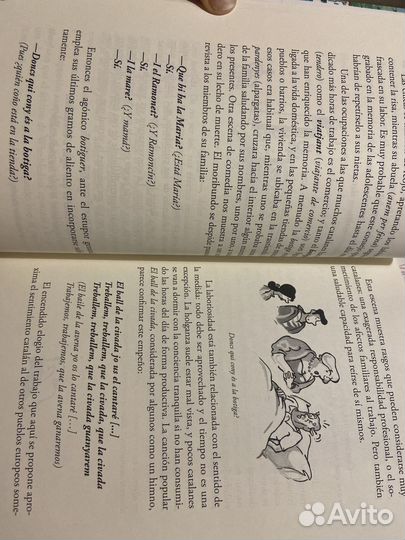 contener la risa mientras su abuela
frascada en su labor. Es muy probable que este
grabado en la memoria de las adolescentes hasta el
habrían de repetírselo a sus nietas.
Una de las ocupaciones a las que muchos catalanes
dicado más horas de trabajo es el comercio, y tanto el
(tendero) como el viatjant (viajante de comercio) son
que han enriquecido la memoria. A menudo la
ligada a la vida doméstica, y en las pequeñas tiendas de
pueblos o barrios, la vivienda se ubicaba en la tras
esos casos era habitual que, mientras uno se probaba
pardenyes (alpargatas), cruzara hacia el interior algún
de la familia saludando por sus nombres, uno por uno, a
los presentes. Otra escena de comedia nos muestra a un
dero en su lecho de muerte. El moribundo se despide
revista a los miembros de su familia:
—Que hi ha la Maria? (¿Está María?)
—Sí.
—I el Ramonet? (¿Y Ramoncín?)
—Sí.
—I la mare? (¿Y mamá?)
—Sí.
Entonces el agónico botiguer, ante el estupor
emplea sus últimos gramos de aliento en incorporarse
tamente:
—Doncs qui cony és a la botiga?
(Pues ¿quién coño está en la tienda?)
Esta escena muestra rasgos que pueden considerarse muy
catalanes: una exagerada responsabilidad profesional, o el so-
metimiento de los afectos familiares al trabajo. Pero también
una saludable capacidad para reírse de sí mismos.
Doncs qui cony és a la botiga?
La laboriosidad está también relacionada con el sentido de
la medida: todo debe ser aprovechado y el tiempo no es una
excepción. La holganza suele estar mal vista, y pocos catalanes
se van a dormir con la conciencia tranquila si no han consumi-
do las horas del día de forma productiva. La canción popular
El ball de la civada, considerada por algunos como un himno,
parece confirmar este empeño:
El ball de la civada jo us el cantaré [...]
Treballem, treballem, que la civada, que la civada
Treballem, treballem, que la civada guanyarem
(El baile de la avena yo os lo cantaré [...]
Trabajemos, trabajemos, que la avena ganaremos)
El encendido elogio del trabajo que aquí se propone apro-
xima el sentimiento catalán al de otros pueblos europeos some-
Avito